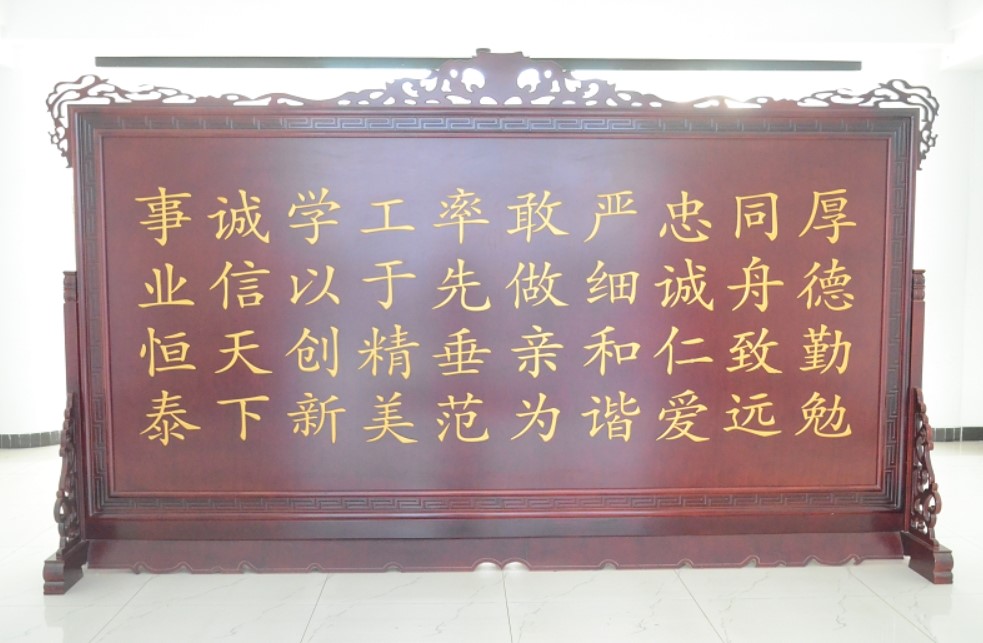 厚德勤勉
同舟致远
忠诚仁爱
严细和谐
敢做亲为
率先垂范
工于精美
学以创新
诚信天下
事业恒泰